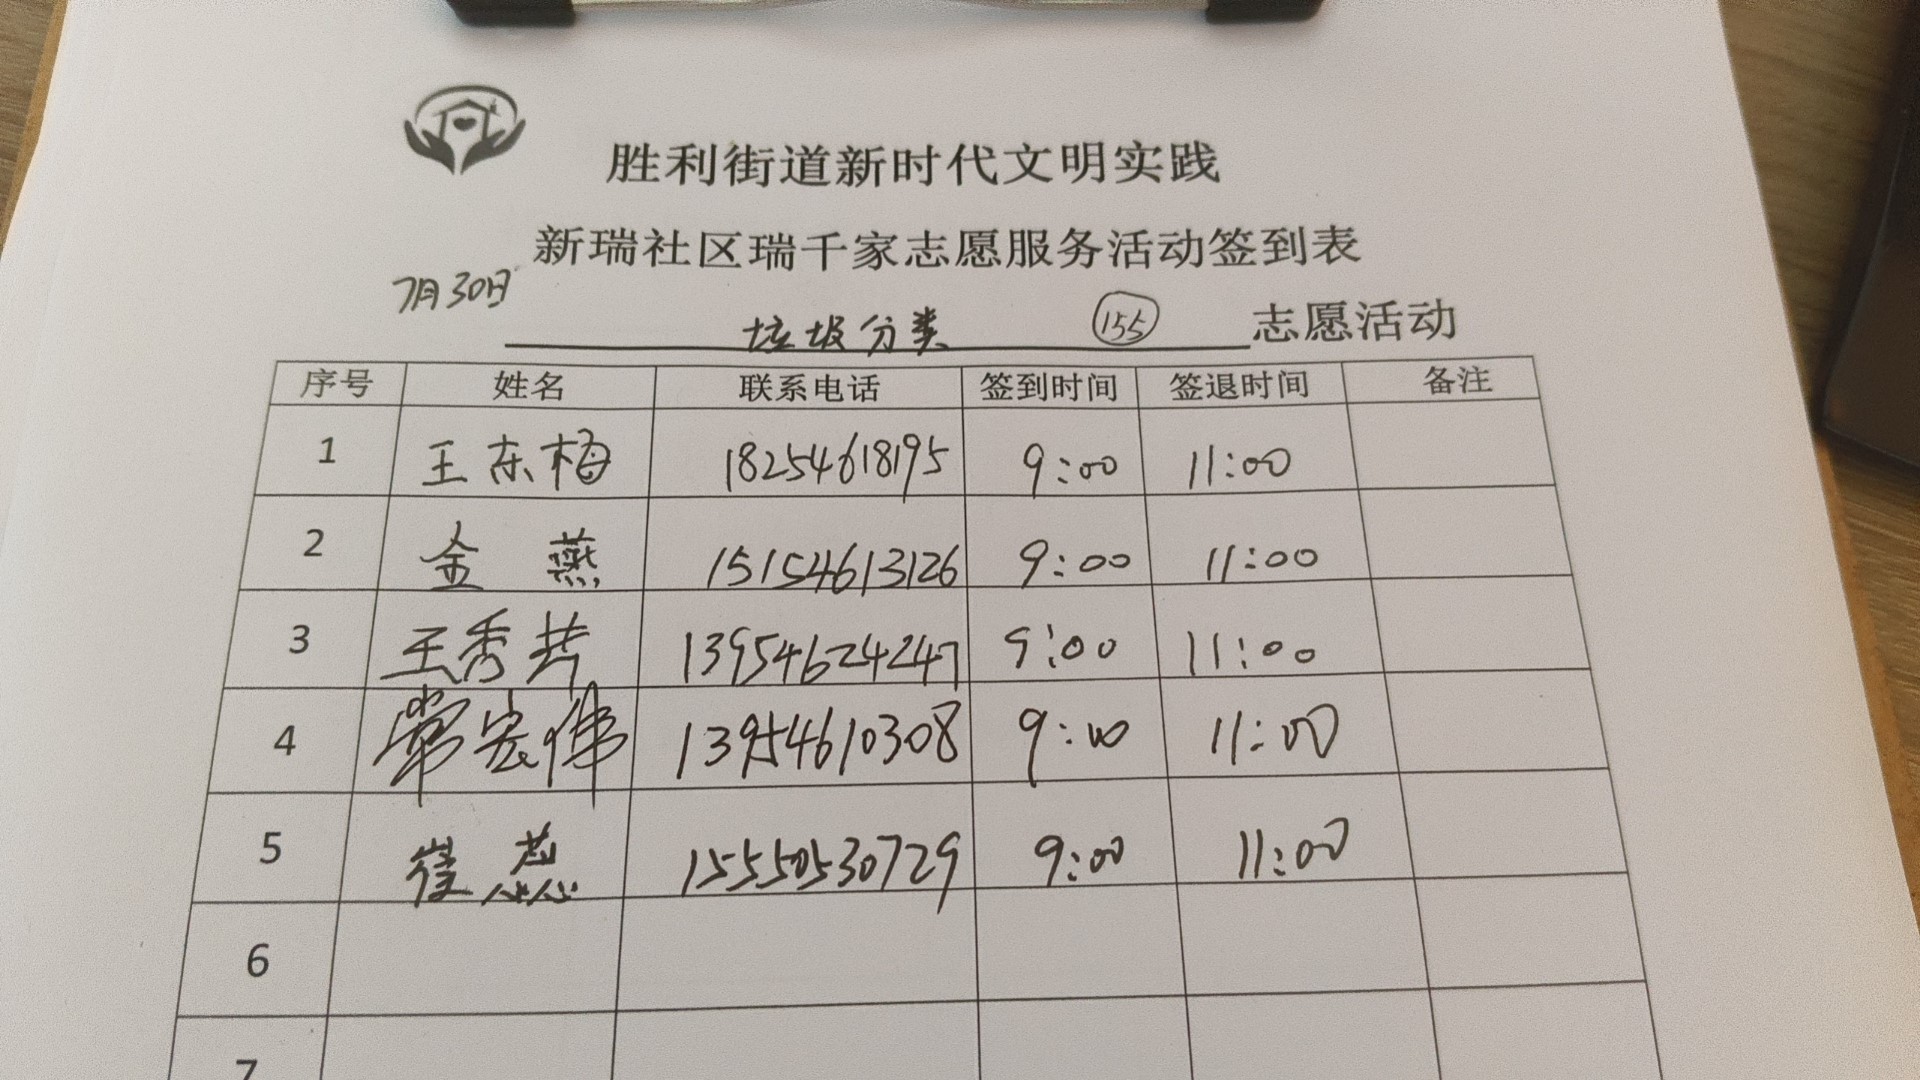 胜利街道新时代文明实践
新瑞社区瑞千家志愿服务活动签到表
7月30日
垃圾分类 155 志愿活动
序号 姓名 联系电话 签到时间 签退时间 备注
1 王东梅 18254618195 9:00 11:00
2 金燕 15154613126 9:00 11:00
3 王秀芬 13954624247 9:00 11:00
4 常宏伟 13954610308 9:00 11:00
5 崔蕊 15550530729 9:00 11:00
6
7